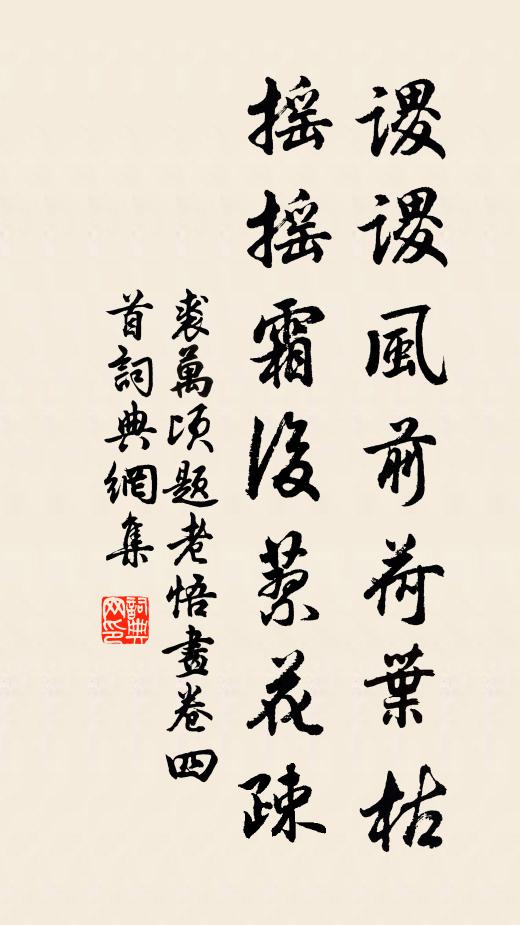 謖謖風前荷葉枯
搖搖霜後蓼花疎
裘萬頃題老悟畫卷四
首詞典網集
詞典
网印